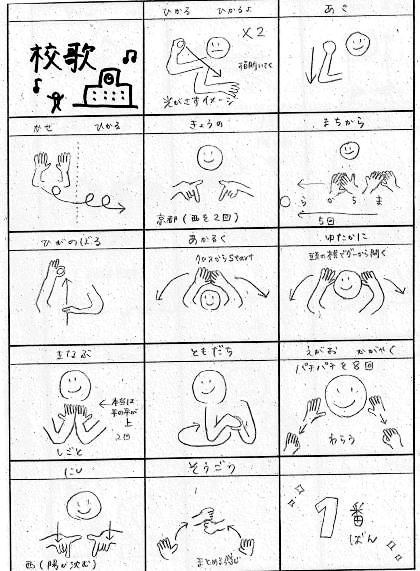 校歌
ひかる ひかるよ
×2
指開いてく
光がさすイメージ
あさ
かぜ ひかる
きょうの
京都(西を2回)
まちから
らからま
5回
ひがのぼる
あかるく
クロスからstart
ゆたかに
頭の横でグーから開く
まなぶ
本当は
手の平が
上
2回
しごと
ともだち
えがお かがやく
パチパチを8回
わらう
にし
西(陽が沈む)
そうごう
まとめる
1番
ばん